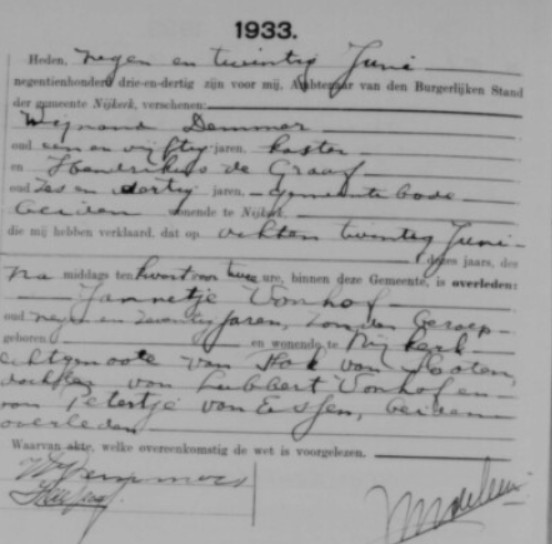 1933.
Heden, negen en twintig Juni
negentienhonderd drie-en-dertig zijn voor mij, Ambtenaar van den Burgerlijken Stand
der gemeente Nijkerk, verschenen:
Wijnand Demmer
oud een en vijftig jaren, koster
en Hendrikus de Graaf
oud zes en dertig jaren, gemeentebode
beiden wonende te Nijkerk,
die mij hebben verklaard, dat op acht en twintig Juni
dezes jaars, des
na middags ten kwart voor twee ure, binnen deze Gemeente, is overleden:
Jannetje Vonhof
oud negen en zeventig jaren, zonder beroep
geboren en wonende te Nijkerk
echtgenoote van Hak van Slooten,
dochter van Lubbert Vonhof en
van Petertje van Essen, beiden
overleden
Waarvan akte, welke overeenkomstig de wet is voorgelezen.